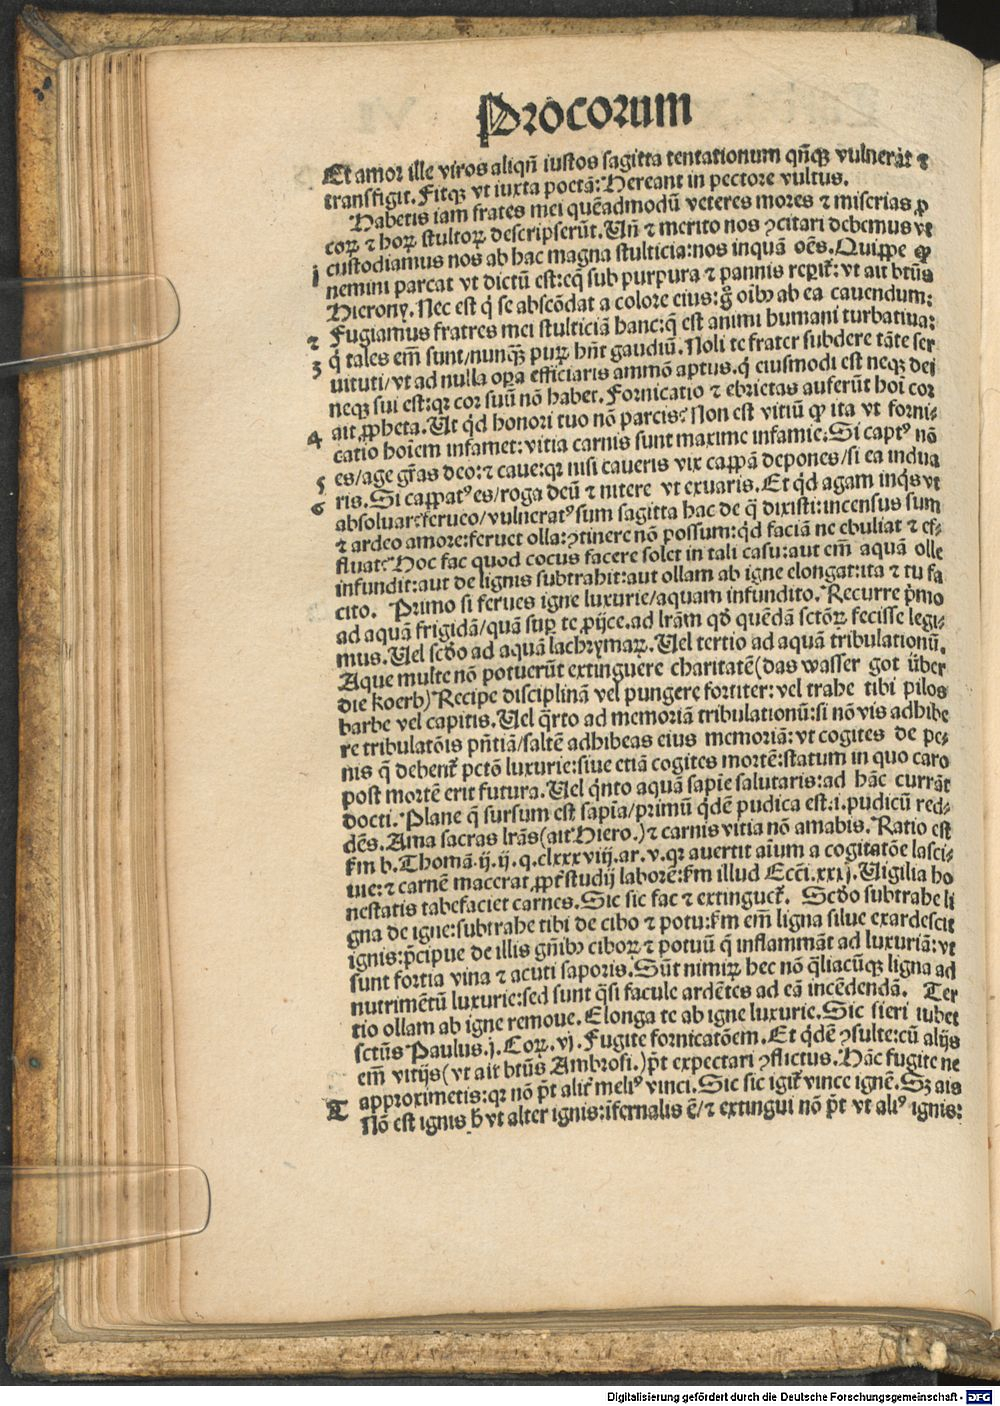 Procorum
Et amor ille viros aliqñ iustos sagitta tentationum qñq; vulnerat ⁊
transfigit. Fitq; vt iuxta poetā: Hereant in pectore vultus.
Habetis iam frates mei quēadmodū veteres mores ⁊ miserias ꝓ
coꝝ ⁊ hoꝝ stultoꝝ descripserūt. Uñ ⁊ merito nos ꝯcitari debemus vt
custodiamus nos ab hac magna stulticia: nos inquā oēs. Quippe ꝙ
i nemini parcat vt dictū est: eq̄ sub purpura ⁊ pannis reperit̄: vt ait btūs
Hierony. Nec est q̇ se abscōdat a colore eius: g̊ oībꝰ ab ea cauendum:
2 Fugiamus fratres mei stulticiā hanc: q̄ est animi humani turbatiua:
3 q̇ tales em̄ sunt/nunq̄ꝫ puꝝ hn̄t gaudiū. Noli te frater subdere tāte ser
uituti/vt ad nulla oꝑa efficiaris ammō aptus. q̇ eiusmodi est neq; dei
neq; sui est: qꝛ cor suū nō habet. Fornicatio ⁊ ebrietas auferūt hoī cor
ait ꝓpheta. Ut qͥd honori tuo nō parcis? Non est vitiū ꝙ ita vt forni-
4 catio hoīem infamet: vitia carnis sunt maxime infamie. Si captꝰ nō
es/age gr̄as deo: ⁊ caue: qꝛ nisi caueris vix cappā depones/si ea indua
5 ris. Si cappatꝰ es/roga deū ⁊ nitere vt exuaris. Et qͥd agam inqͥs vt
6 absoluar? ferueo/vulneratꝰ sum sagitta hac de q̄ dixisti: incensus sum
⁊ ardeo amore: feruet olla: ꝯtinere nō possum: qͥd faciā ne ebuliat ⁊ ef-
fluat? Hoc fac quod cocus facere solet in tali casu: aut em̄ aquā olle
infundit: aut de lignis subtrahit: aut ollam ab igne elongat: ita ⁊ tu fa
cito. Primo si ferues igne luxurie/aquam infundito. Recurre p̄mo
ad aquā frigidā/quā suꝑ te ꝓijce. ad lr̄am qđ quēdā sctōꝝ fecisse legi-
mus. Uel scđo ad aquā lachrymaꝝ. Uel tertio ad aquā tribulationū.
Aque multe nō potuerūt extinguere charitatē (das wasser got über
die koerb) Recipe disciplinā vel pungere fortiter: vel trahe tibi pilos
barbe vel capitis. Uel q̄rto ad memoriā tribulationū: si nō vis adhibe
re tribulatōis pn̄tiā/saltē adhibeas eius memoriā: vt cogites de pe-
nis q̄ debent̄ pctō luxurie: siue etiā cogites mortē: statum in quo caro
post mortē erit futura. Uel qͥnto aquā sapie salutaris: ad hāc currāt
docti. Plane q̄ sursum est sapīa/primū qͥdē pudica est .i. pudicū red-
dēs. Ama sacras lr̄as (ait Hiero.) ⁊ carnis vitia nō amabis. Ratio est
km b. Thomā. ij. ij. q. clxxxviij. ar. v. qꝛ auertit aīum a cogitatōe lasci-
uie: ⁊ carnē macerat ꝓpt̄ studij laborē: km illud Ecci. xxxj. Uigilia ho
nestatis tabefaciet carnes. Sic sic fac ⁊ extinguet̄. Scđo subtrahe li
gna de igne: subtrahe tibi de cibo ⁊ potu: km em̄ ligna silue exardescit
ignis: p̄cipue de illis gn̄ibꝰ ciboꝝ ⁊ potuū q̄ inflammāt ad luxuriā: vt
sunt fortia vina ⁊ acuti saporis. Sūt nimiꝝ hec nō q̄liacūqꝫ ligna ad
nutrimētū luxurie: sed sunt q̄si facule ardētes ad eā incēdendā. Ter
tio ollam ab igne remoue. Elonga te ab igne luxurie. Sic fieri iubet
sctūs Paulus. j. Coꝝ. vj. Fugite fornicatōem. Et qͥdē ꝯsulte: cū alijs
em̄ vitijs (vt ait btūs Ambrosi.) p̄t expectari ꝯflictus. Hāc fugite ne
approximetis: qꝛ nō p̄t alit̄ meliꝰ vinci. Sic sic igit̄ vince ignē. Sꝫ ais
T Nō est ignis ħ vt alter ignis: īfernalis ē/⁊ extingui nō p̄t vt aliꝰ ignis:
Digitalisierung gefördert durch die Deutsche Forschungsgemeinschaft - DFG